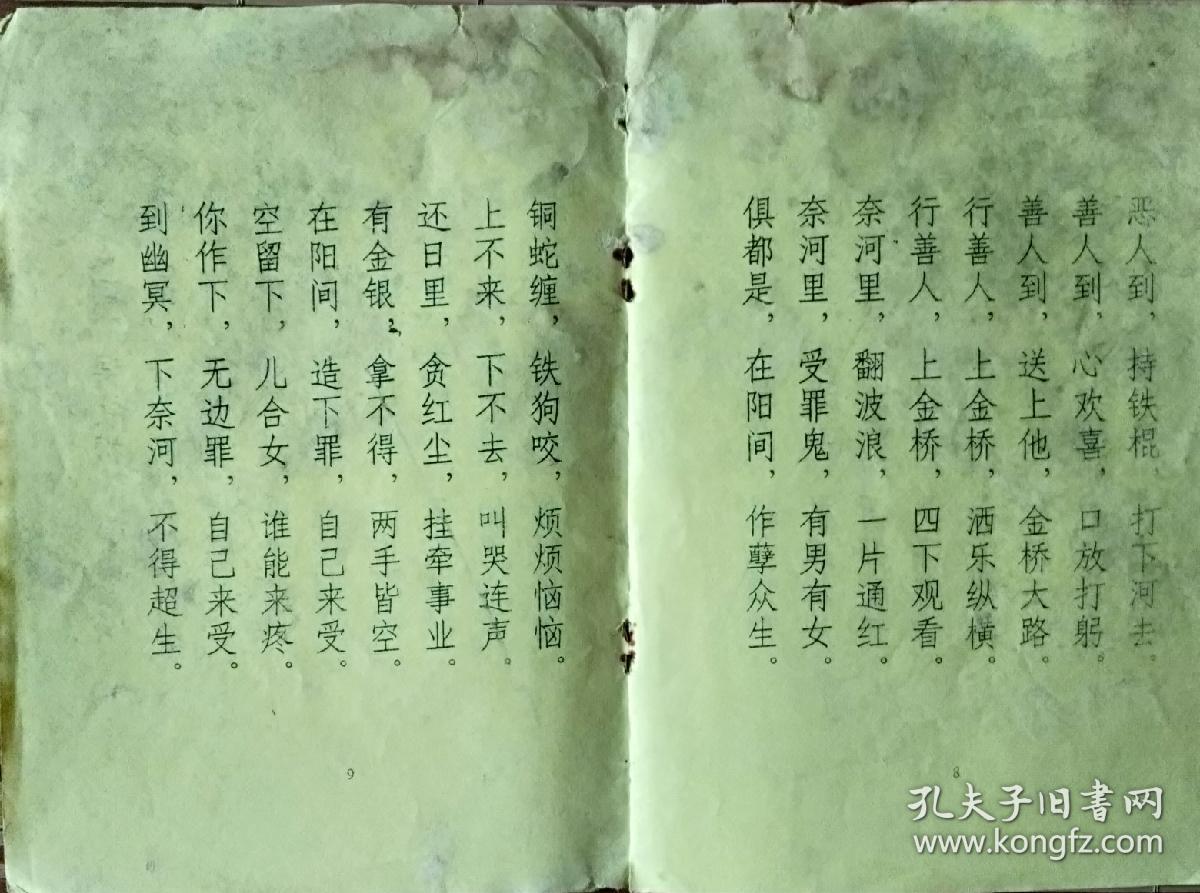 恶人到，持铁棍，打下河去。
善人到，心欢喜，口放打躬。
善人到，送上他，金桥大路。
行善人，上金桥，洒乐纵横。
行善人，上金桥，四下观看。
奈河里，翻波浪，一片通红。
奈河里，受罪鬼，有男有女。
俱都是，在阳间，作孽众生。
8
铜蛇缠，铁狗咬，烦烦恼恼。
上不来，下不去，叫哭连声。
还日里，贪红尘，挂牵事业。
有金银，拿不得，两手皆空。
在阳间，造下罪，自己来受。
空留下，儿合女，谁能来疼。
你作下，无边罪，自己来受。
到幽冥，下奈河，不得超生。
9
孔夫子旧书网
www.kongfz.com